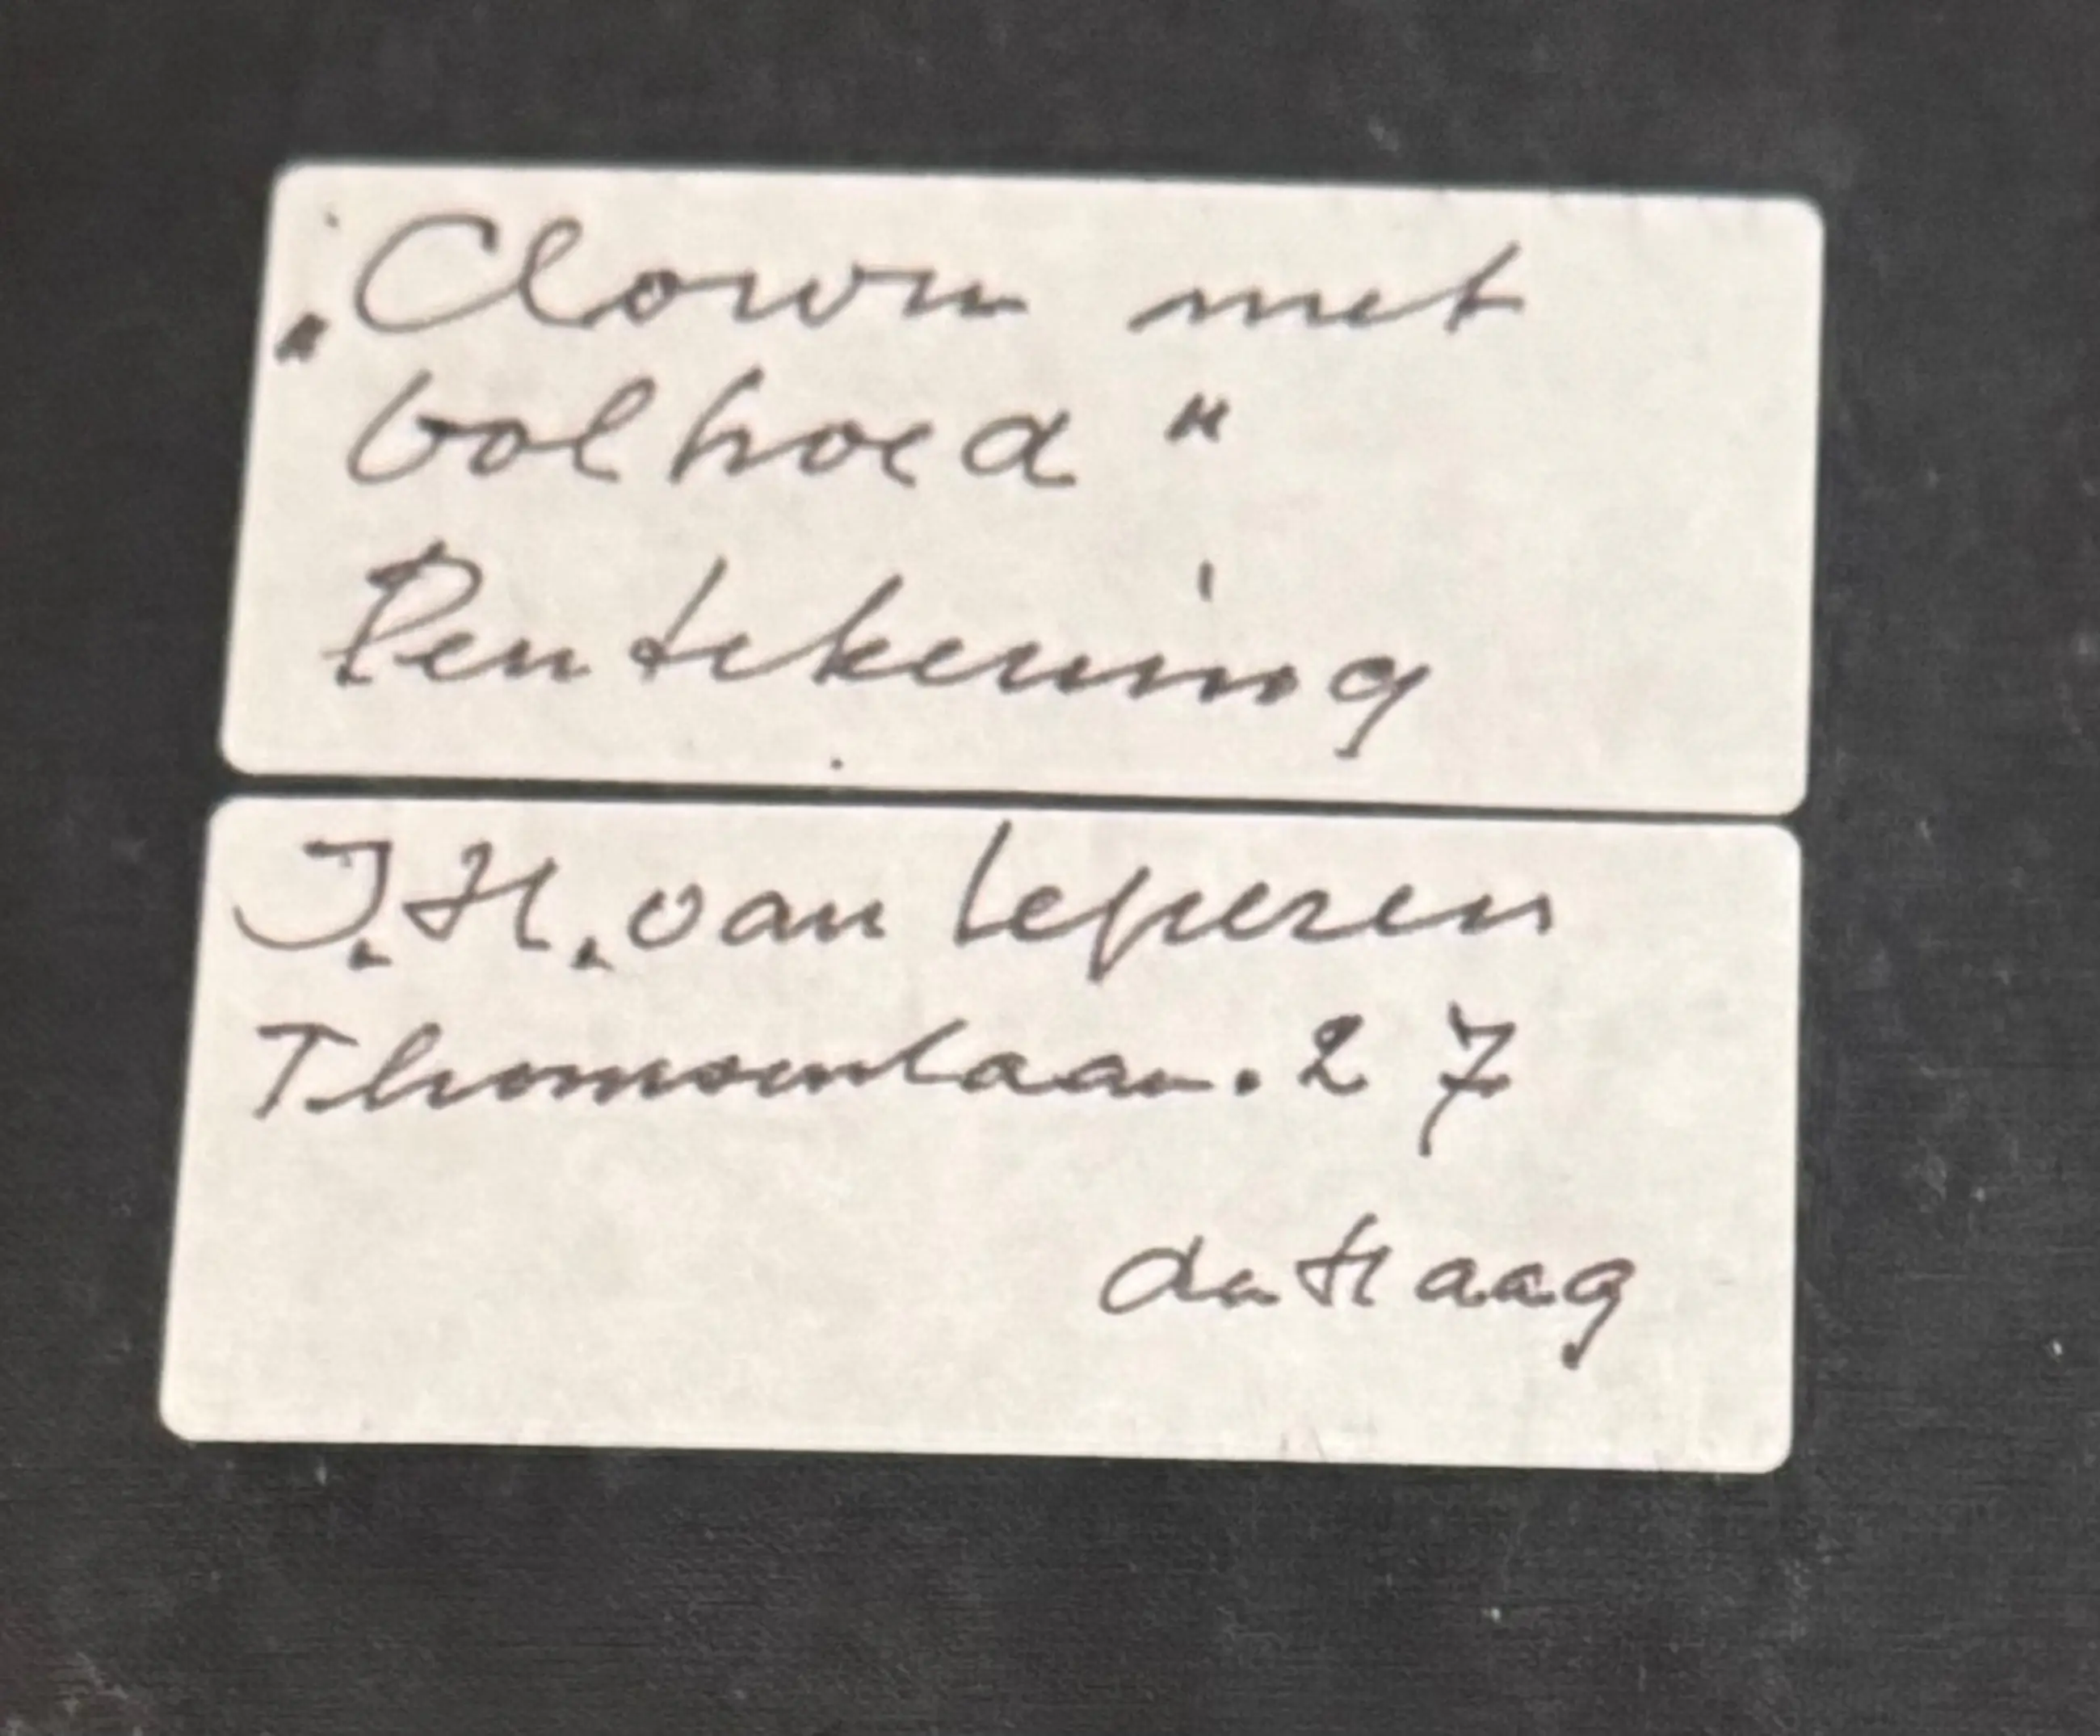 „Clown met
bolhoed"
Pentekening
J.H. van Ieperen
Thomsonlaan. 27
den Haag